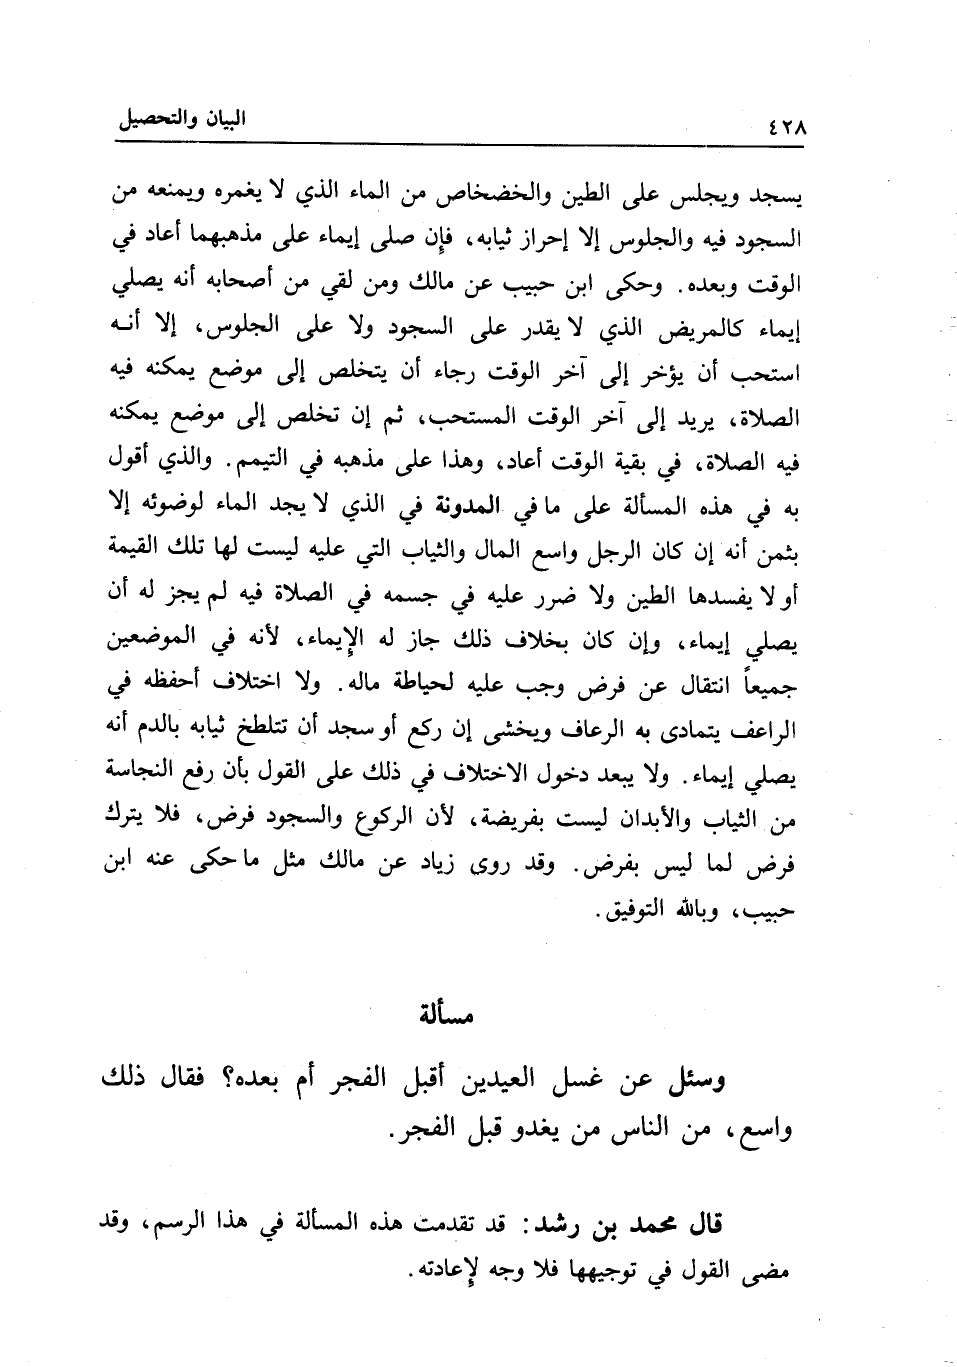 ٤٢٨ البيان والتحصيل
يسجد ويجلس على الطين والخضخاض من الماء الذي لا يغمره ويمنعه من
السجود فيه والجلوس إلا إحراز ثيابه، فإن صلى إيماء على مذهبهما أعاد في
الوقت وبعده. وحكى ابن حبيب عن مالك ومن لقي من أصحابه أنه يصلي
إيماء كالمريض الذي لا يقدر على السجود ولا على الجلوس، إلا أنه
استحب أن يؤخر إلى آخر الوقت رجاء أن يتخلص إلى موضع يمكنه فيه
الصلاة، يريد إلى آخر الوقت المستحب، ثم إن تخلص إلى موضع يمكنه
فيه الصلاة، في بقية الوقت أعاد، وهذا على مذهبه في التيمم. والذي أقول
به في هذه المسألة على ما في المدونة في الذي لا يجد الماء لوضوئه إلا
بثمن أنه إن كان الرجل واسع المال والثياب التي عليه ليست لها تلك القيمة
أو لا يفسدها الطين ولا ضرر عليه في جسمه في الصلاة فيه لم يجز له أن
يصلي إيماء، وإن كان بخلاف ذلك جاز له الإيماء، لأنه في الموضعين
جميعاً انتقال عن فرض وجب عليه لحياطة ماله. ولا اختلاف أحفظه في
الراعف يتمادى به الرعاف ويخشى إن ركع أو سجد أن تتلطخ ثيابه بالدم أنه
يصلي إيماء. ولا يبعد دخول الاختلاف في ذلك على القول بأن رفع النجاسة
من الثياب والأبدان ليست بفريضة، لأن الركوع والسجود فرض، فلا يترك
فرض لما ليس بفرض. وقد روى زياد عن مالك مثل ما حكى عنه ابن
حبيب، وبالله التوفيق.
مسألة
وسئل عن غسل العيدين أقبل الفجر أم بعده؟ فقال ذلك
واسع، من الناس من يغدو قبل الفجر.
قال محمد بن رشد: قد تقدمت هذه المسألة في هذا الرسم، وقد
مضى القول في توجيهها فلا وجه لإعادته.